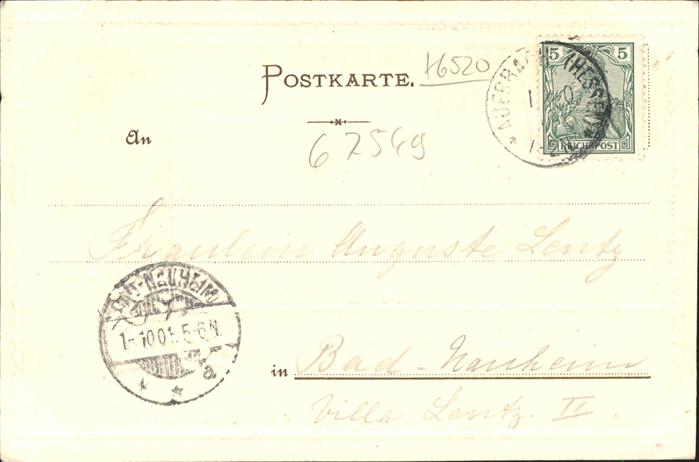 POSTKARTE.
46520
5 5
REICHSPOST
* AUERBACH (HESSEN) *
An
67549
Fräulein Auguste Lentz
BAD-NAUHEIM
1-10 01. 5-6 N.
* * a
in Bad-Nauheim
Villa Lentz. II.